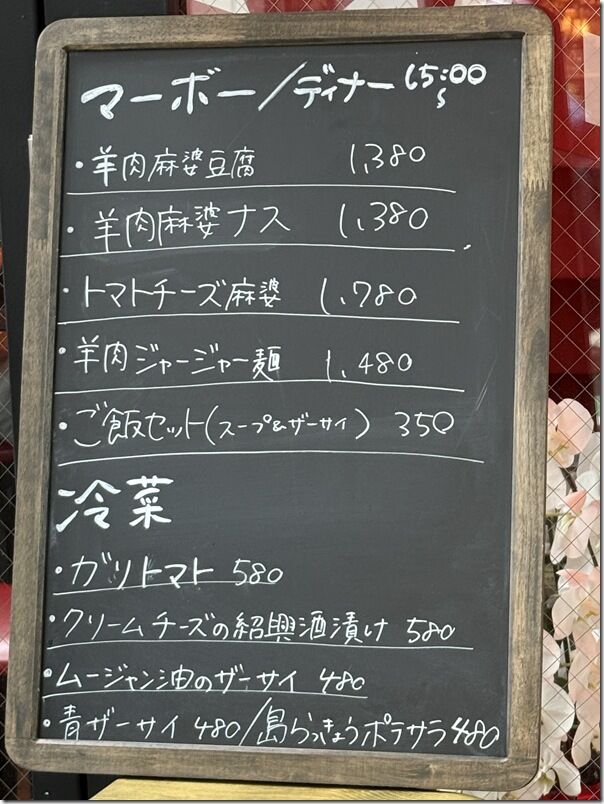 マーボー/ディナー 15:00~
・羊肉麻婆豆腐 1,380
・羊肉麻婆ナス 1,380
・トマトチーズ麻婆 1,780
・羊肉ジャージャー麺 1,480
・ご飯セット(スープ&ザーサイ) 350
冷菜
・ガリトマト 580
・クリームチーズの紹興酒漬け 580
・ムージャン油のザーサイ 480
・青ザーサイ 480/島らっきょうポテサラ 480